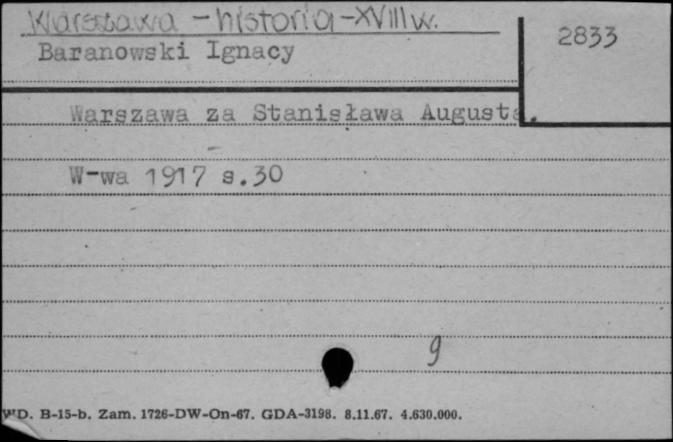 Warszawa - historia - XVIII w.
2833
Baranowski Ignacy
Warszawa za Stanisława Augusta.
W-wa 1917 s.30
9
WD. B-15-b. Zam. 1726-DW-On-67. GDA-3198. 8.11.67. 4.630.000.